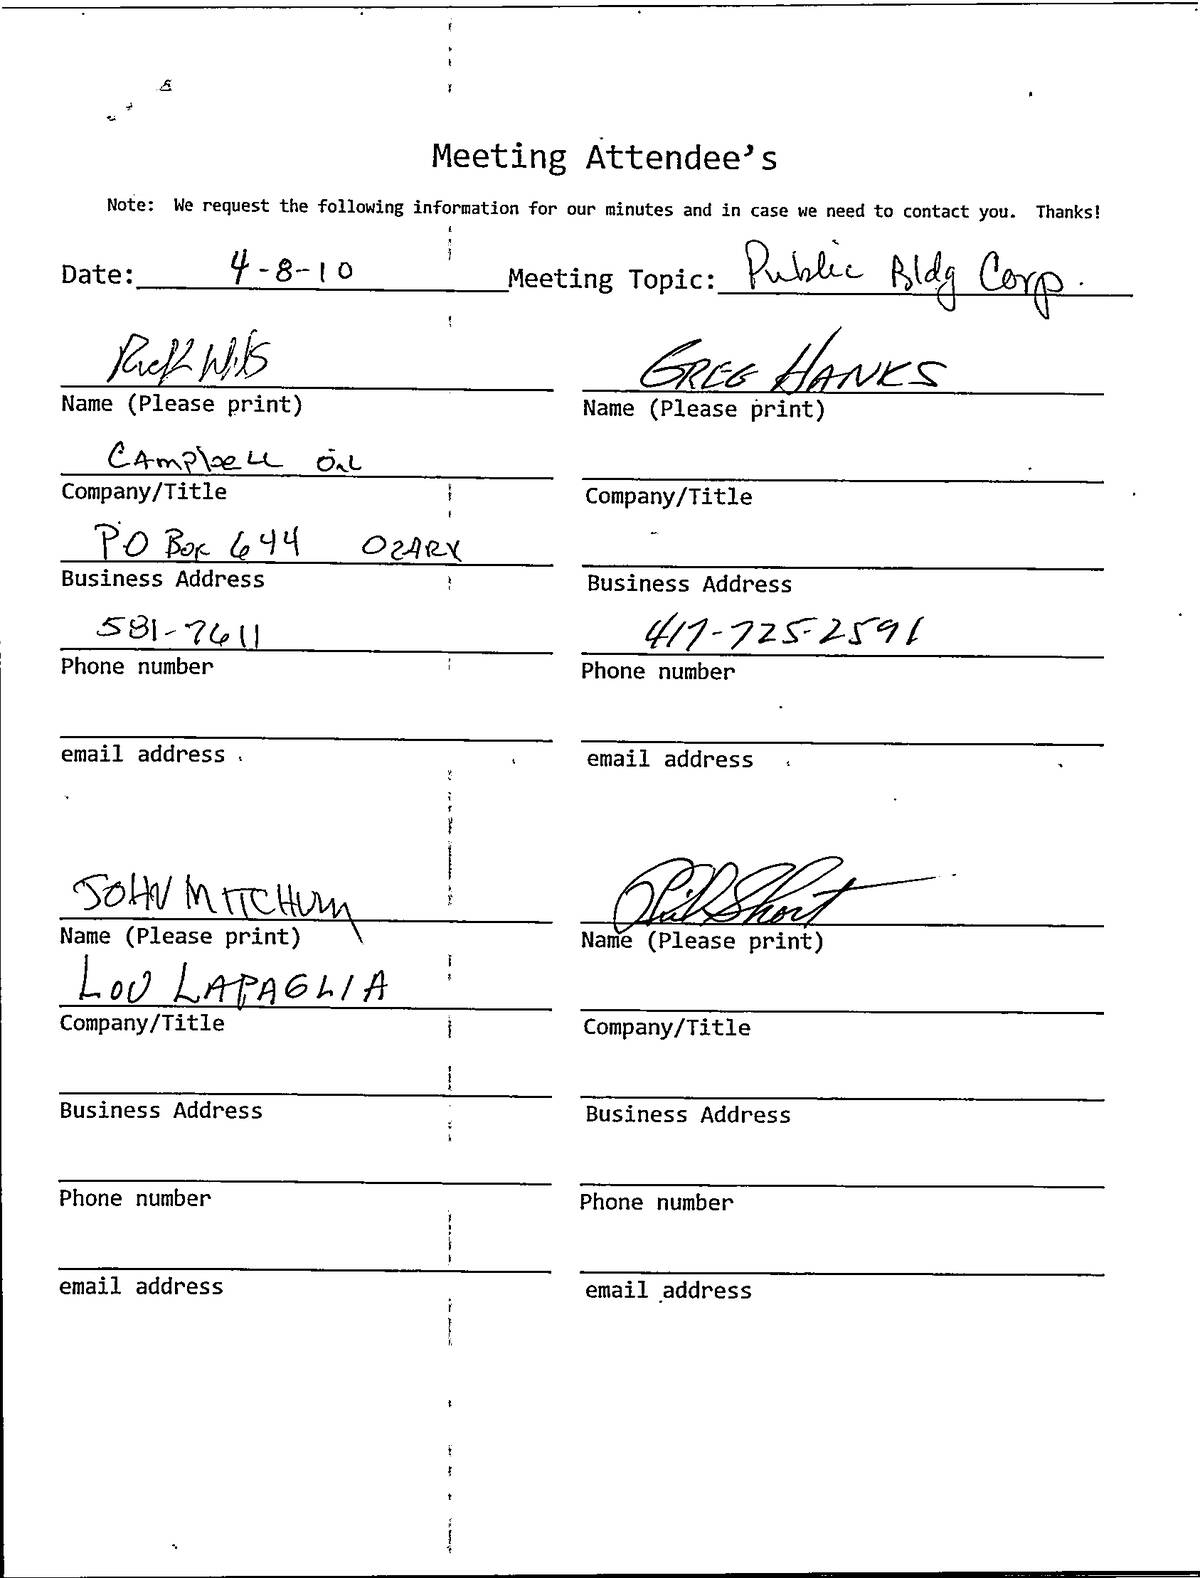 Meeting Attendee's
Note: We request the following information for our minutes and in case we need to contact you. Thanks!
Date: 4-8-10 Meeting Topic: Public Bldg Corp.
Rick GREG HANKS
Name (Please print) Name (Please print)
CAmpbell OIL
Company/Title Company/Title
PO Box 644 OZARK
Business Address Business Address
581-7611 417-725-2591
Phone number Phone number
email address email address
JOHN MITCHUM Phil Short
Name (Please print) Name (Please print)
LOU LAPAGLIA
Company/Title Company/Title
Business Address Business Address
Phone number Phone number
email address email address